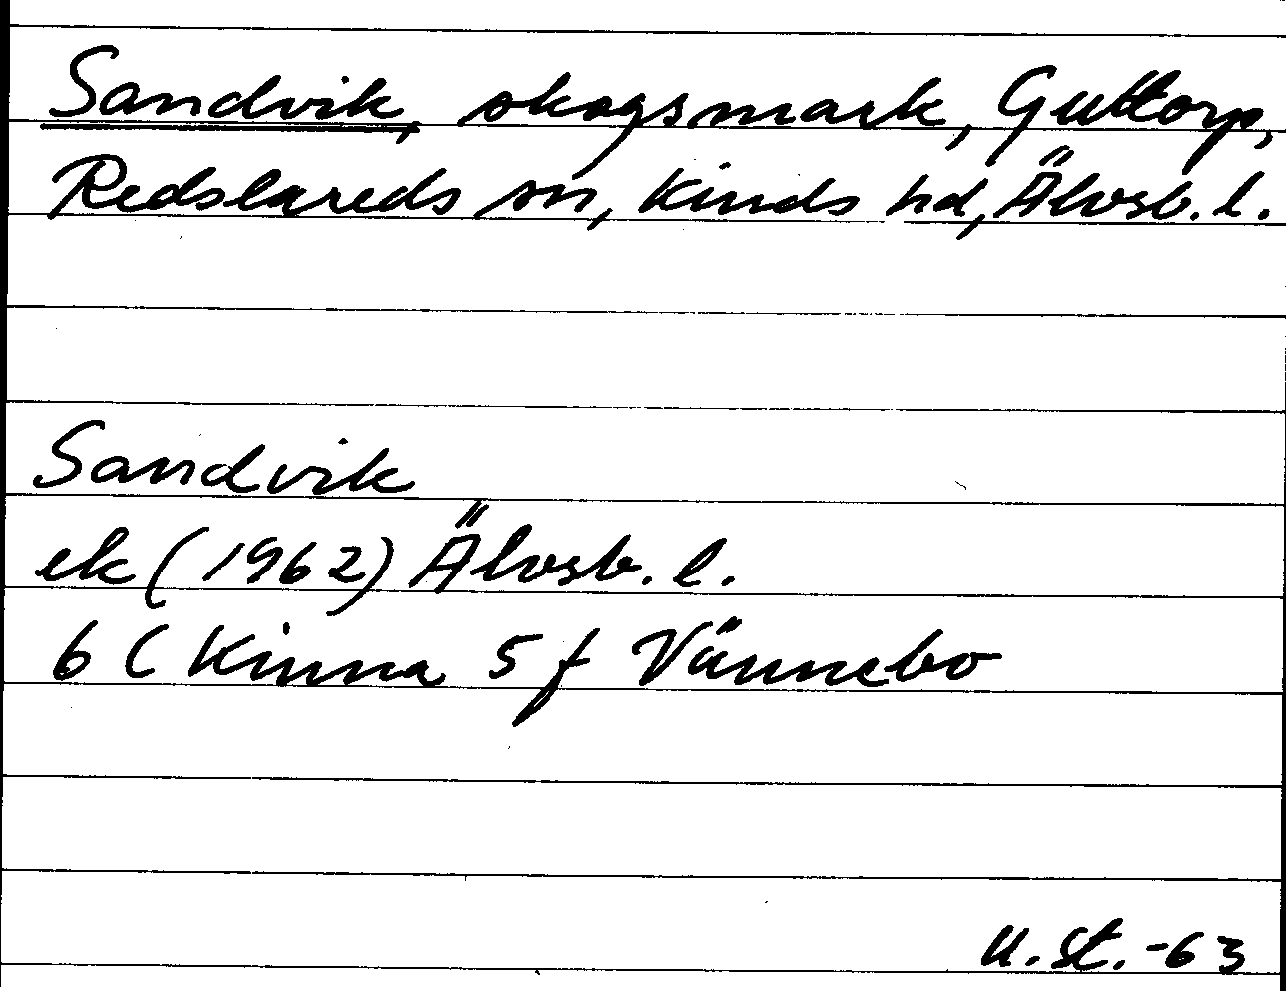 Sandvik, skogsmark, Guttorp,
Redslareds sn, Kinds hd, Älvsb. l.
Sandvik
ek (1962) Älvsb. l.
6 C Kinna 5 f Vännebo
U. St. -63